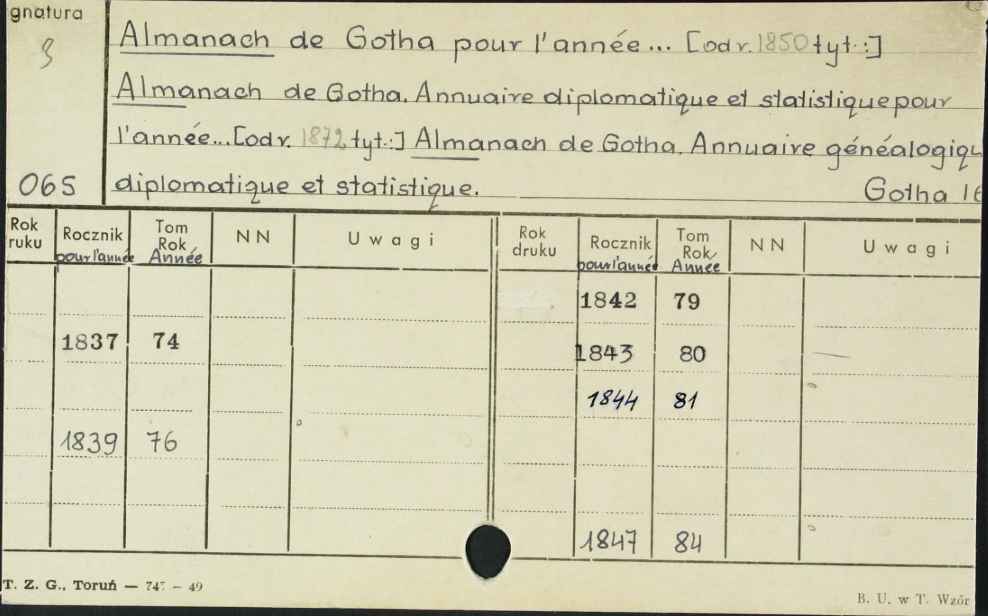 gnatura
Almanach de Gotha pour l'année... [od r. 1850 tyt.:]
Almanach de Gotha. Annuaire diplomatique et statistique pour
l'année... [od r. 1872 tyt.:] Almanach de Gotha. Annuaire généalogiqu
065 diplomatique et statistique. Gotha
Rok ruku Rocznik pour l'année Tom Rok Année NN Uwagi Rok druku Rocznik pour l'année Tom Rok/ Année NN Uwagi
1842 79
1837 74
1843 80
1844 81
1839 76
1847 84
T. Z. G., Toruń — 747 – 49
B. U. w T. Wzór